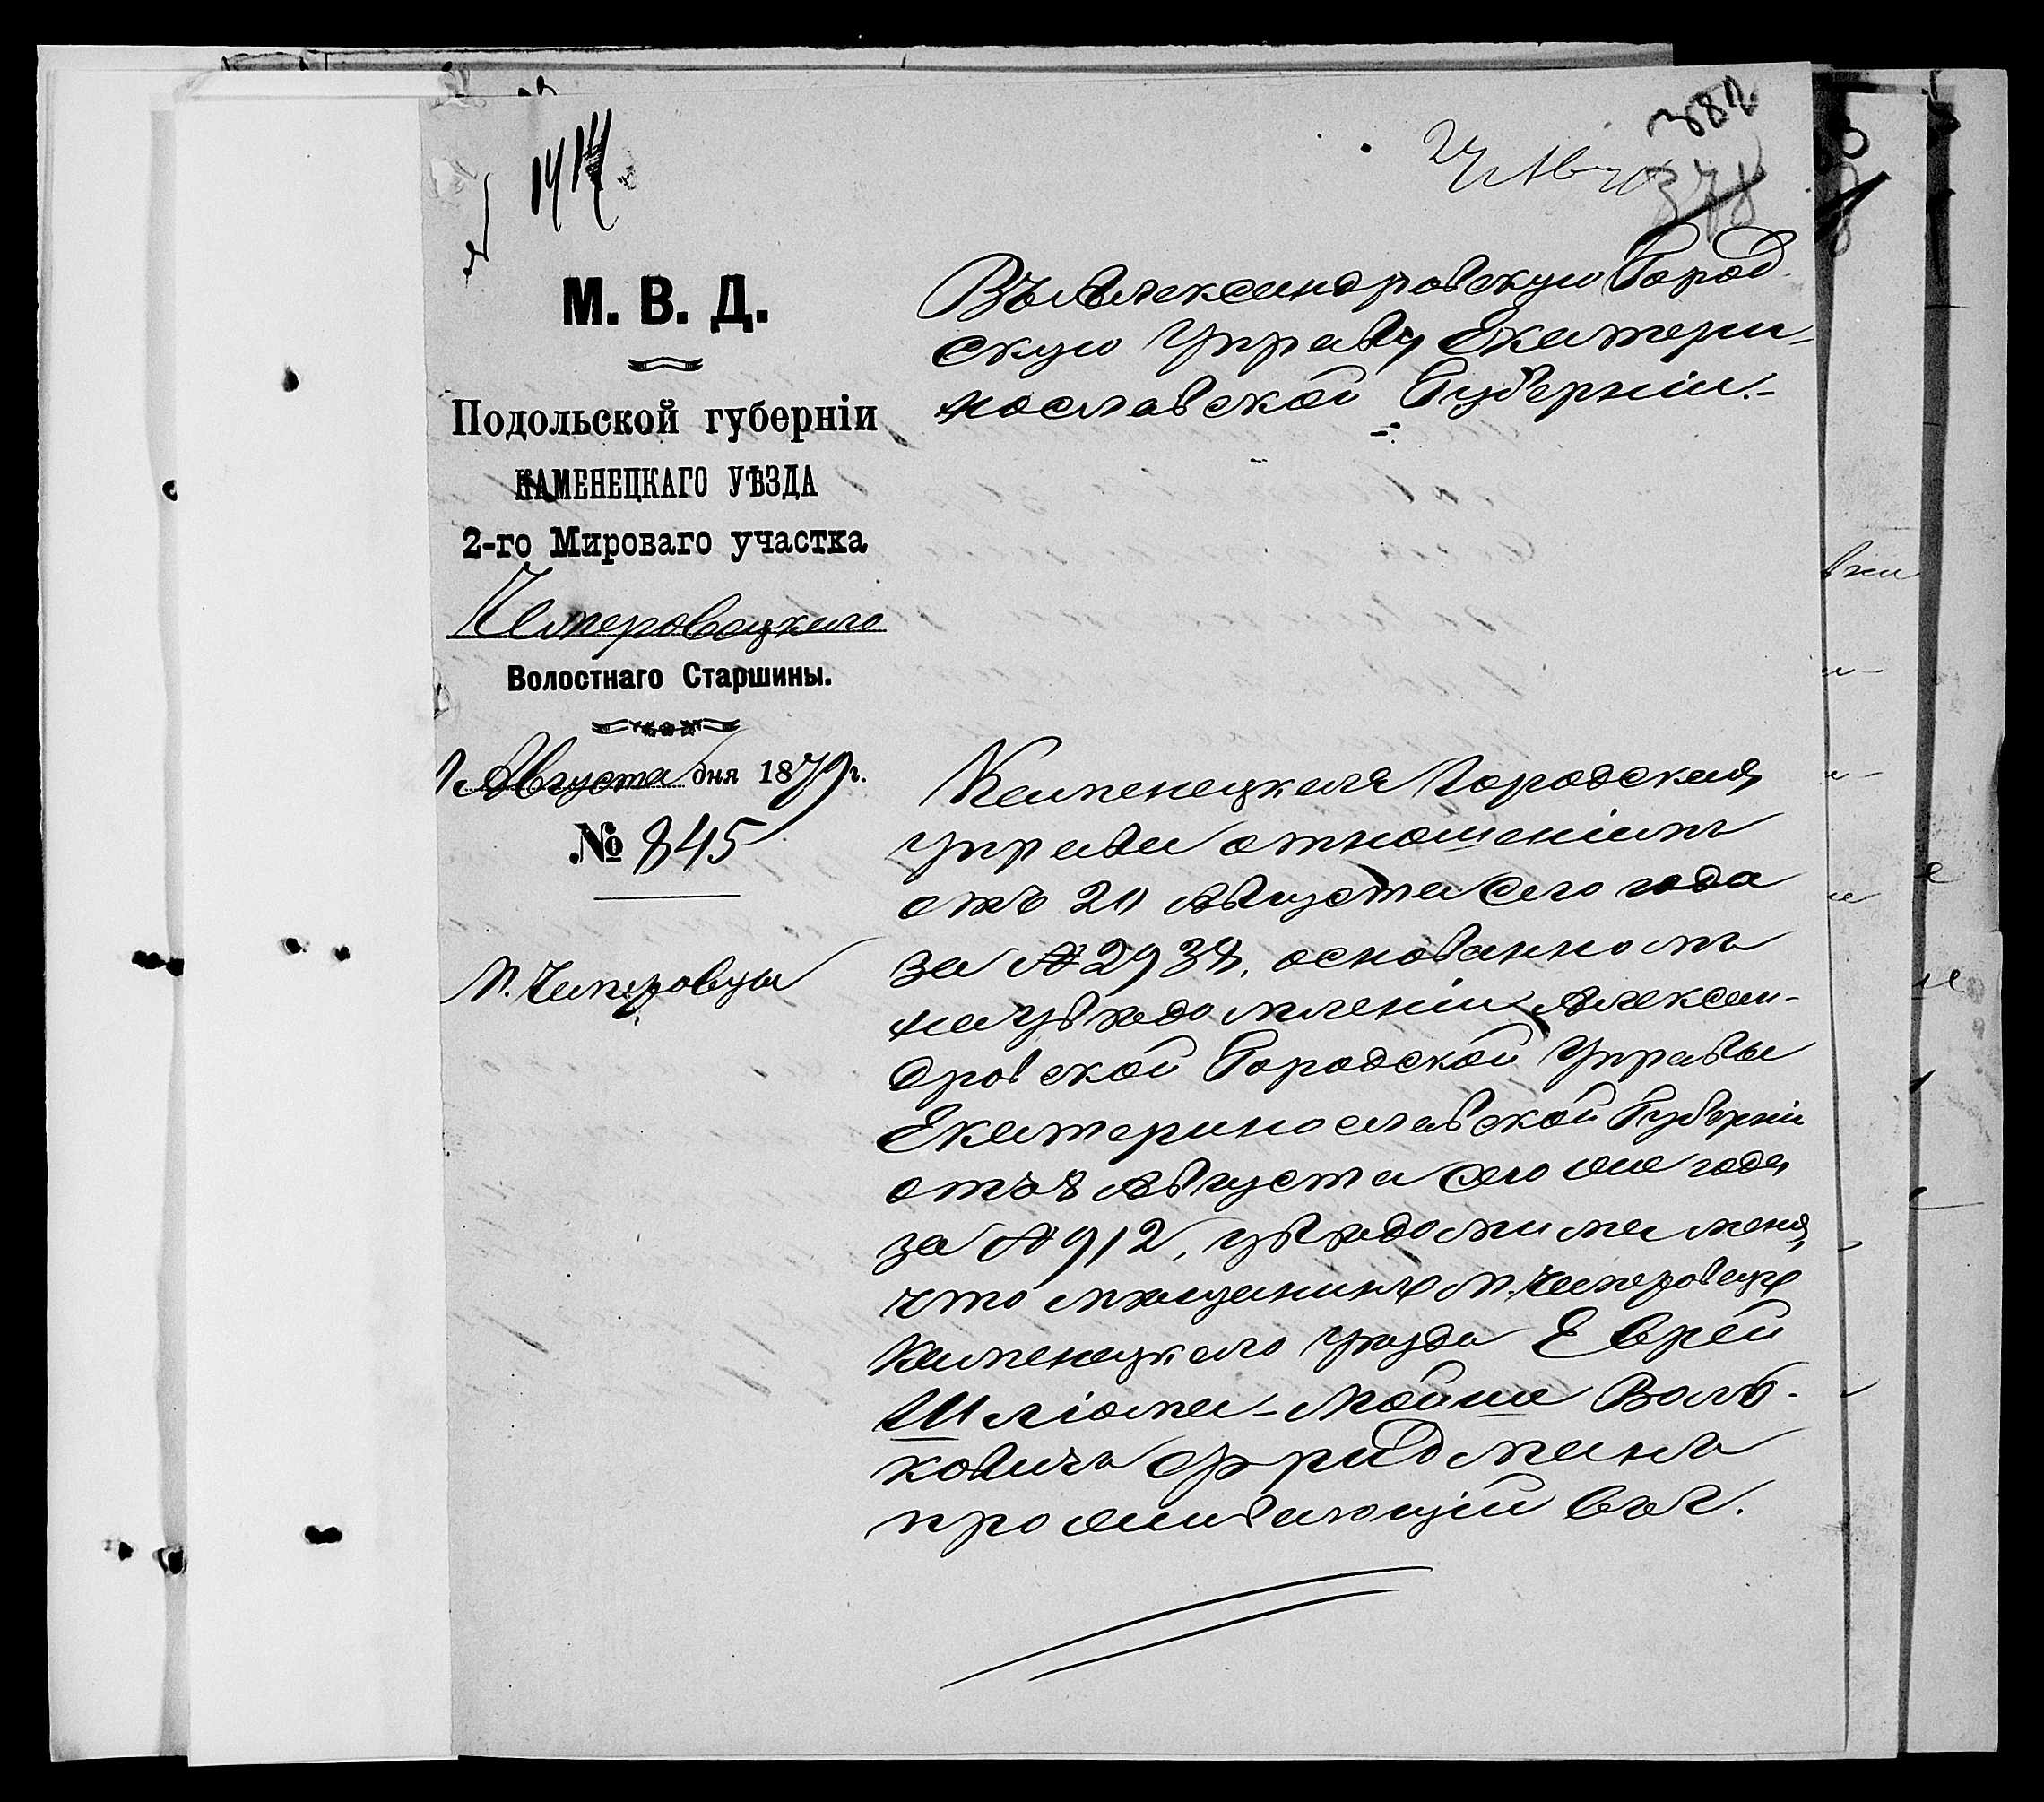 1914
27 Авг
382
378
М. В. Д.
Подольской губерніи
КАМЕНЕЦКАГО УѢЗДА
2-го Мироваго участка
Чемеровецкаго
Волостнаго Старшины.
Августа дня 1879 г.
№ 845
М. Чемеровцы
Въ Александровскую Город
скую Управу Екатери-
нославской Губерніи.-
Каменецкая Городская
Управа отношеніемъ
отъ 20 Августа сего года
за № 2938, основанномъ
на увѣдомленіи Алексан-
дровской Городской Управы
Екатеринославской Губерніи
отъ 8 Августа сего же года
за № 912, увѣдомила меня,
что мѣщанинъ М. Чемеровецъ
Каменецкаго уѣзда Еврей
Шліома-Мойше Воль-
ковичъ Фридманъ
проживающій въ г.